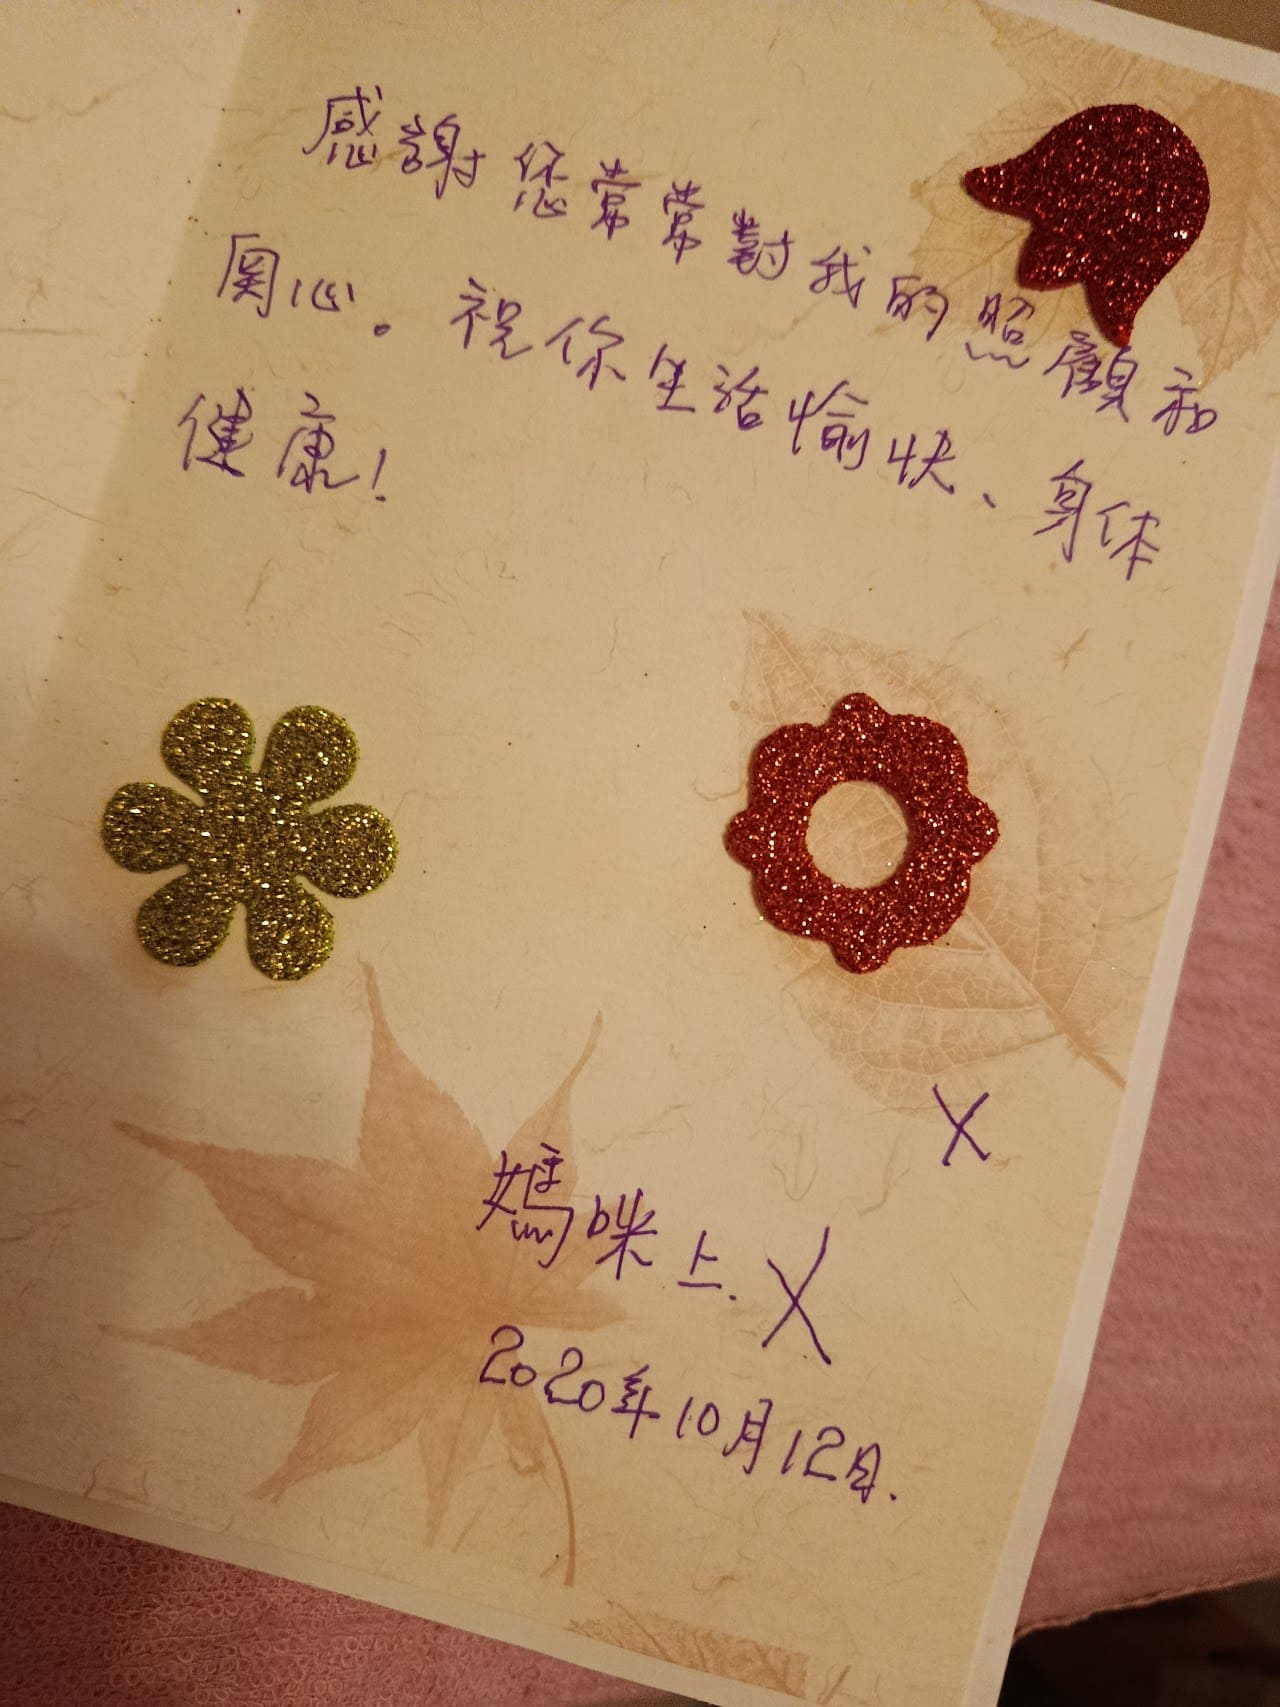 感謝您常常對我的照顧和
関心。祝你生活愉快、身体
健康!
X
媽咪上. X
2020年10月12日.